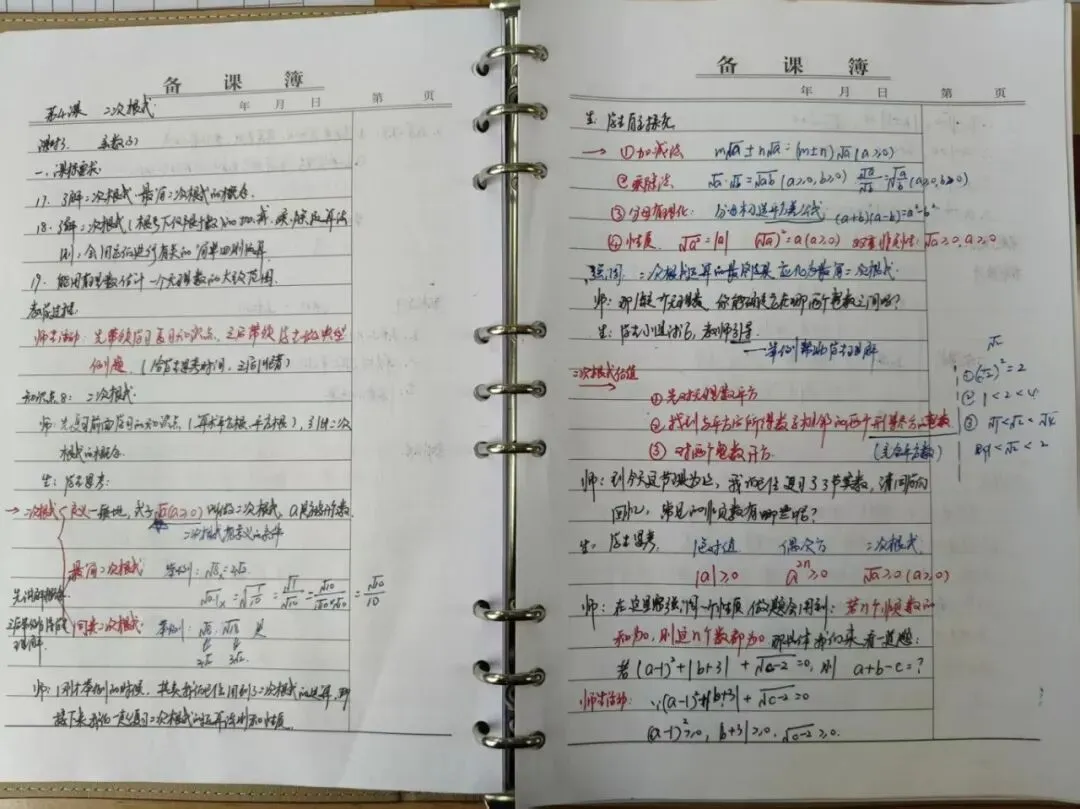 备课簿
年 月 日 第 页
第4课 二次根式
课时3. 实数(3)
一、课标要求:
17. 了解二次根式、最简二次根式的概念.
18. 了解二次根式(根号下仅限于数)的加、减、乘、除运算法
则,会用它们进行有关的简单四则运算.
19. 能用有理数估计一个无理数的大致范围.
教学过程:
师生活动: 先带领复习知识点,之后带领学生做典型
例题.
知识点8: 二次根式.
师: 先复习前面学习的知识点(算术平方根、平方根),引出二次
根式的概念.
生: 学生思考:
→ 二次根式 定义: 一般地, 式子√a(a≥0)叫做二次根式, a叫被开方数.
二次根式有意义的条件
最简二次根式: 举例: √8=2√2
√0.1=√1/10=√1/√10=√10/√10×√10=√10/10
同类二次根式: 举例: √8, √18 是
2√2 3√2
师: 刚才举例的时候, 其实我们已经用到了二次根式的运算, 那
接下来我们一起复习二次根式的运算法则和性质.
备课簿
年 月 日 第 页
生: 学生自主探究
→ ①加减法 m√a±n√a=(m±n)√a(a≥0)
②乘除法 √a·√b=√ab(a≥0,b≥0) √a/√b=√a/b(a≥0,b>0)
③分母有理化: 分母构造平方差公式 (a+b)(a-b)=a²-b²
④性质. √a²=|a| (√a)²=a(a≥0) 双重非负性: √a≥0, a≥0
强调: 二次根式运算的最终结果应化为最简二次根式.
师: 那么一个无理数, 你能确定它在哪两个整数之间吗?
生: 学生小组讨论, 教师引导.
举例帮助学生理解
√2
二次根式估值
→ ①先对无理数平方
①(√2)²=2
②找到与平方后所得数字相邻的两个开得尽方的整数
②1<2<4
(完全平方数)
③√1<√2<√4
③对两个整数开方.
即1<√2<2
师: 到今天这节课为止, 我们已经复习了3节实数, 请同学们
回忆, 常见的非负数有哪些呢?
生: 学生思考. 绝对值 偶次方 二次根式.
|a|≥0 a²ⁿ≥0 √a≥0(a≥0)
师: 在这里强调一个性质, 做题会用到: 若n个非负数的
和为0, 则这n个数都为0. 那具体我们来看一道题:
若(a-1)²+|b+3|+√c-2=0, 则 a+b-c=?
师生活动: ∵(a-1)²+|b+3|+√c-2=0
(a-1)²≥0, |b+3|≥0, √c-2≥0.